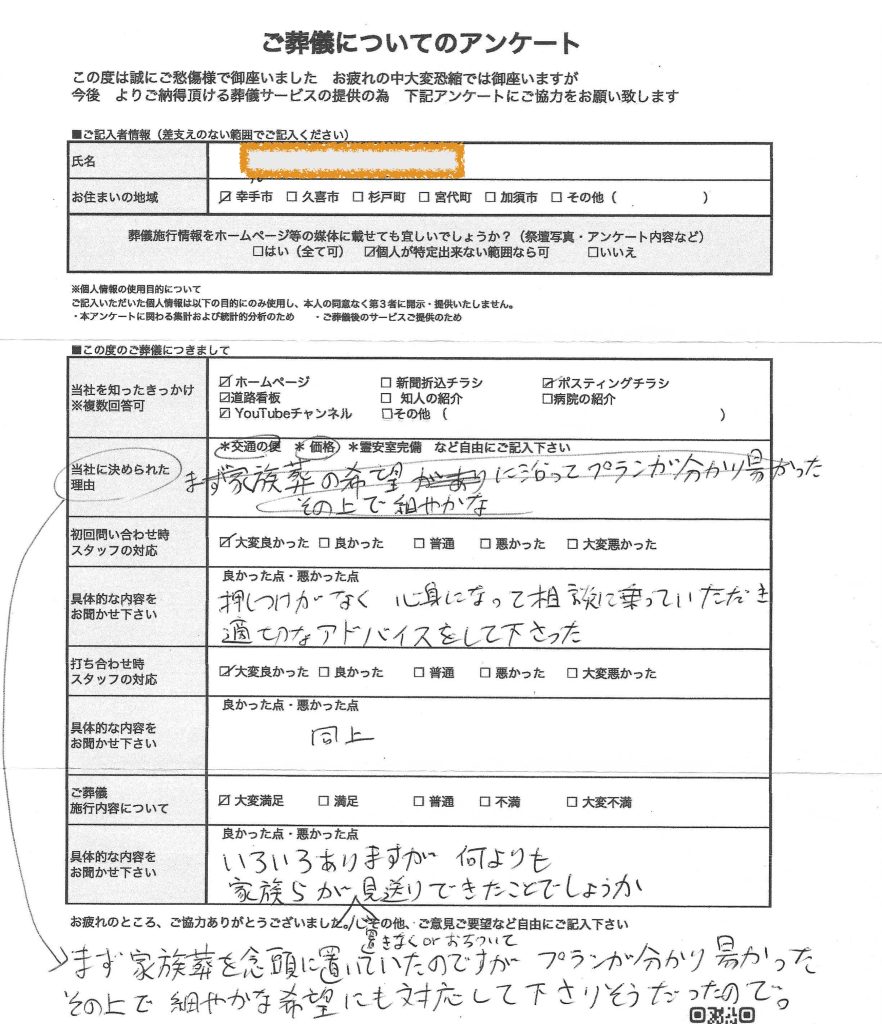 ご葬儀についてのアンケート
この度は誠にご愁傷様で御座いました　お疲れの中大変恐縮では御座いますが
今後　よりご納得頂ける葬儀サービスの提供の為　下記アンケートにご協力をお願い致します
■ご記入者情報（差支えのない範囲でご記入ください）
氏名
お住まいの地域 ☑ 幸手市 □ 久喜市 □ 杉戸町 □ 宮代町 □ 加須市 □ その他（　　　　　）
葬儀施行情報をホームページ等の媒体に載せても宜しいでしょうか？（祭壇写真・アンケート内容など）
□はい（全て可） ☑個人が特定出来ない範囲なら可 □いいえ
※個人情報の使用目的について
ご記入いただいた個人情報は以下の目的にのみ使用し、本人の同意なく第３者に開示・提供いたしません。
・本アンケートに関わる集計および統計的分析のため　・ご葬儀後のサービスご提供のため
■この度のご葬儀につきまして
当社を知ったきっかけ
※複数回答可
☑ ホームページ □ 新聞折込チラシ ☑ ポスティングチラシ
☑道路看板 □ 知人の紹介 □病院の紹介
☑ YouTubeチャンネル □その他（　　　　　）
当社に決められた
理由
＊交通の便 ＊ 価格 ＊霊安室完備　など自由にご記入下さい
まず家族葬の希望があり に沿ってプランが分かり易かった
その上で細やかな
初回問い合わせ時
スタッフの対応
☑ 大変良かった □ 良かった □ 普通 □ 悪かった □ 大変悪かった
具体的な内容を
お聞かせ下さい
良かった点・悪かった点
押しつけがなく 心身になって相談に乗っていただき
適切なアドバイスをして下さった
打ち合わせ時
スタッフの対応
☑ 大変良かった □ 良かった □ 普通 □ 悪かった □ 大変悪かった
具体的な内容を
お聞かせ下さい
良かった点・悪かった点
同上
ご葬儀
施行内容について
☑ 大変満足 □ 満足 □ 普通 □ 不満 □ 大変不満
具体的な内容を
お聞かせ下さい
良かった点・悪かった点
いろいろありますが 何よりも
家族らが見送りできたことでしょうか
お疲れのところ、ご協力ありがとうございました。その他、ご意見ご要望など自由にご記入下さい
置きなくorおちついて
まず家族葬を念頭に置いていたのですが プランが分かり易かった
その上で細やかな希望にも対応して下さりそうだったので。